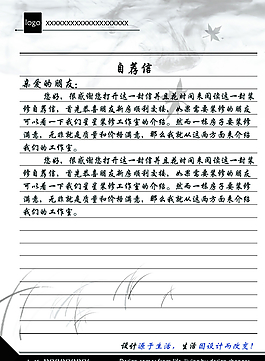 logo
XXXXXXXXXXXXXXXXXXXX
自荐信
亲爱的朋友：
您好，很感谢您打开这一封信并且花时间来阅读这一封装
修自荐信，首先恭喜朋友新房顺利交接，如果需要装修的朋友
可以看一下我们星星装修工作室的介绍。然而一样房子要装修
满意，无非就是质量和价格满意，那么我就从这两方面来介绍
我们的工作室。
您好，很感谢您打开这一封信并且花时间来阅读这一封装
修自荐信，首先恭喜朋友新房顺利交接，如果需要装修的朋友
可以看一下我们星星装修工作室的介绍。然而一样房子要装修
满意，无非就是质量和价格满意，那么我就从这两方面来介绍
我们的工作室。
设计源于生活，生活因设计而改变！